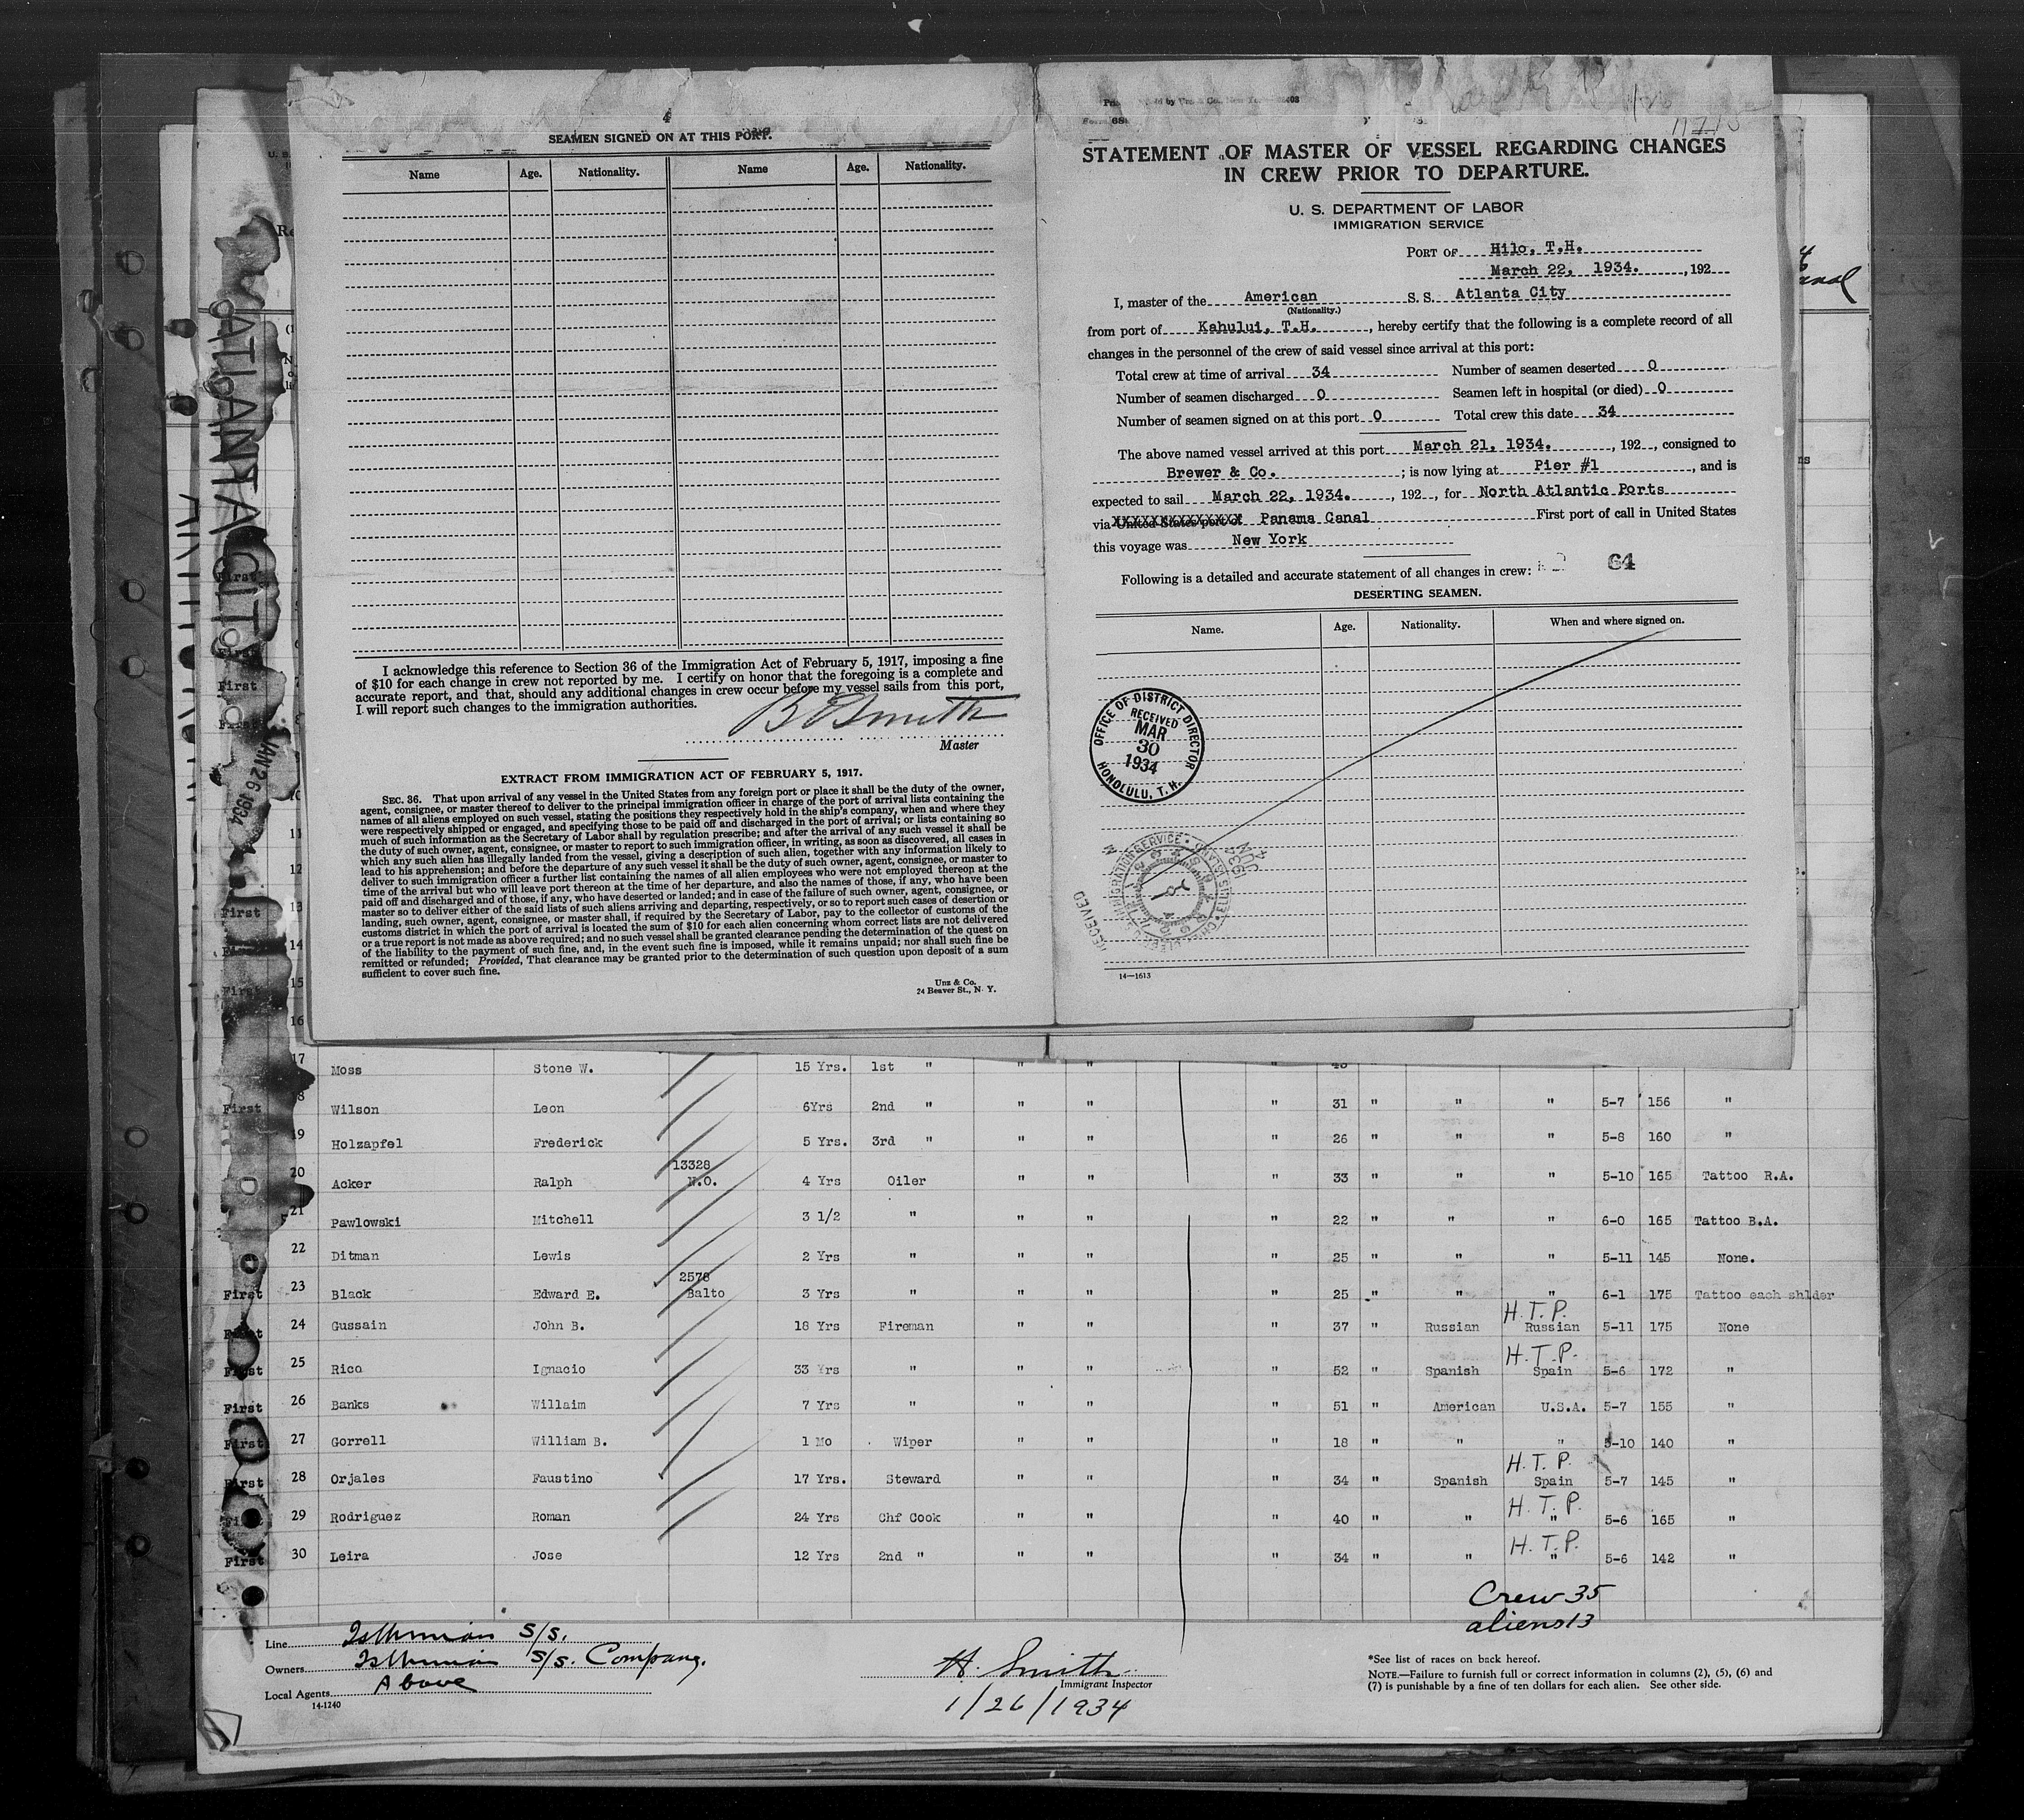 4
SEAMEN SIGNED ON AT THIS PORT.
Name Age. Nationality. Name Age. Nationality.
I acknowledge this reference to Section 36 of the Immigration Act of February 5, 1917, imposing a fine
of $10 for each change in crew not reported by me. I certify on honor that the foregoing is a complete and
accurate report, and that, should any additional changes in crew occur before my vessel sails from this port,
I will report such changes to the immigration authorities.
B E Smith
Master
EXTRACT FROM IMMIGRATION ACT OF FEBRUARY 5, 1917.
SEC. 36. That upon arrival of any vessel in the United States from any foreign port or place it shall be the duty of the owner,
agent, consignee, or master thereof to deliver to the principal immigration officer in charge of the port of arrival lists containing the
names of all aliens employed on such vessel, stating the positions they respectively hold in the ship's company, when and where they
were respectively shipped or engaged, and specifying those to be paid off and discharged in the port of arrival; or lists containing so
much of such information as the Secretary of Labor shall by regulation prescribe; and after the arrival of any such vessel it shall be
the duty of such owner, agent, consignee, or master to report to such immigration officer, in writing, as soon as discovered, all cases in
which any such alien has illegally landed from the vessel, giving a description of such alien, together with any information likely to
lead to his apprehension; and before the departure of any such vessel it shall be the duty of such owner, agent, consignee, or master to
deliver to such immigration officer a further list containing the names of all alien employees who were not employed thereon at the
time of the arrival but who will leave port thereon at the time of her departure, and also the names of those, if any, who have been
paid off and discharged and of those, if any, who have deserted or landed; and in case of the failure of such owner, agent, consignee, or
master so to deliver either of the said lists of such aliens arriving and departing, respectively, or so to report such cases of desertion or
landing, such owner, agent, consignee, or master shall, if required by the Secretary of Labor, pay to the collector of customs of the
customs district in which the port of arrival is located the sum of $10 for each alien concerning whom correct lists are not delivered
or a true report is not made as above required; and no such vessel shall be granted clearance pending the determination of the quest on
of the liability to the payment of such fine, and, in the event such fine is imposed, while it remains unpaid; nor shall such fine be
remitted or refunded; Provided, That clearance may be granted prior to the determination of such question upon deposit of a sum
sufficient to cover such fine.
Unz & Co.
24 Beaver St., N. Y.
STATEMENT OF MASTER OF VESSEL REGARDING CHANGES
IN CREW PRIOR TO DEPARTURE.
U. S. DEPARTMENT OF LABOR
IMMIGRATION SERVICE
PORT OF Hilo, T.H.
March 22, 1934. , 192
I, master of the American S. S. Atlanta City
(Nationality.)
from port of Kahului, T.H. , hereby certify that the following is a complete record of all
changes in the personnel of the crew of said vessel since arrival at this port:
Total crew at time of arrival 34 Number of seamen deserted 0
Number of seamen discharged 0 Seamen left in hospital (or died) 0
Number of seamen signed on at this port 0 Total crew this date 34
The above named vessel arrived at this port March 21, 1934. , 192 , consigned to
Brewer & Co. ; is now lying at Pier #1 , and is
expected to sail March 22, 1934. , 192 , for North Atlantic Ports
via United States port of Panama Canal First port of call in United States
this voyage was New York
Following is a detailed and accurate statement of all changes in crew: 64
DESERTING SEAMEN.
Name. Age. Nationality. When and where signed on.
OFFICE OF DISTRICT DIRECTOR
RECEIVED
MAR
30
1934
HONOLULU, T. H.
RECEIVED
IMMIGRATION SERVICE
ELLIS ISLAND
JUN
1934
14—1613
ATLANTA CITY
JAN 26 1934
First
First
First
First
11
12
First 13
First 14
First 15
16
17 Moss Stone W. 15 Yrs. 1st " " " "
First 18 Wilson Leon 6Yrs 2nd " " " " 31 " " " 5-7 156 "
19 Holzapfel Frederick 5 Yrs. 3rd " " " " 26 " " " 5-8 160 "
20 Acker Ralph 13328 N.O. 4 Yrs Oiler " " " 33 " " " 5-10 165 Tattoo R.A.
21 Pawlowski Mitchell 3 1/2 " " " " 22 " " " 6-0 165 Tattoo B.A.
22 Ditman Lewis 2 Yrs " " " " 25 " " " 5-11 145 None.
First 23 Black Edward E. 2578 Balto 3 Yrs " " " " 25 " " " 6-1 175 Tattoo each shlder
First 24 Gussain John B. 18 Yrs Fireman " " " 37 " Russian H.T.P. Russian 5-11 175 None
First 25 Rico Ignacio 33 Yrs " " " " 52 " Spanish H.T.P. Spain 5-6 172 "
First 26 Banks Willaim 7 Yrs " " " " 51 " American U.S.A. 5-7 155 "
First 27 Gorrell William B. 1 Mo Wiper " " " 18 " " " 5-10 140 "
First 28 Orjales Faustino 17 Yrs. Steward " " " 34 " Spanish H.T.P. Spain 5-7 145 "
First 29 Rodriguez Roman 24 Yrs Chf Cook " " " 40 " " H.T.P. " 5-6 165 "
First 30 Leira Jose 12 Yrs 2nd " " " " 34 " " H.T.P. " 5-6 142 "
Crew 35
aliens 13
Line Isthmian S/S.
Owners Isthmian S/S. Company.
Local Agents Above
14-1240
H. Smith
Immigrant Inspector
1/26/1934
*See list of races on back hereof.
NOTE.—Failure to furnish full or correct information in columns (2), (5), (6) and
(7) is punishable by a fine of ten dollars for each alien. See other side.